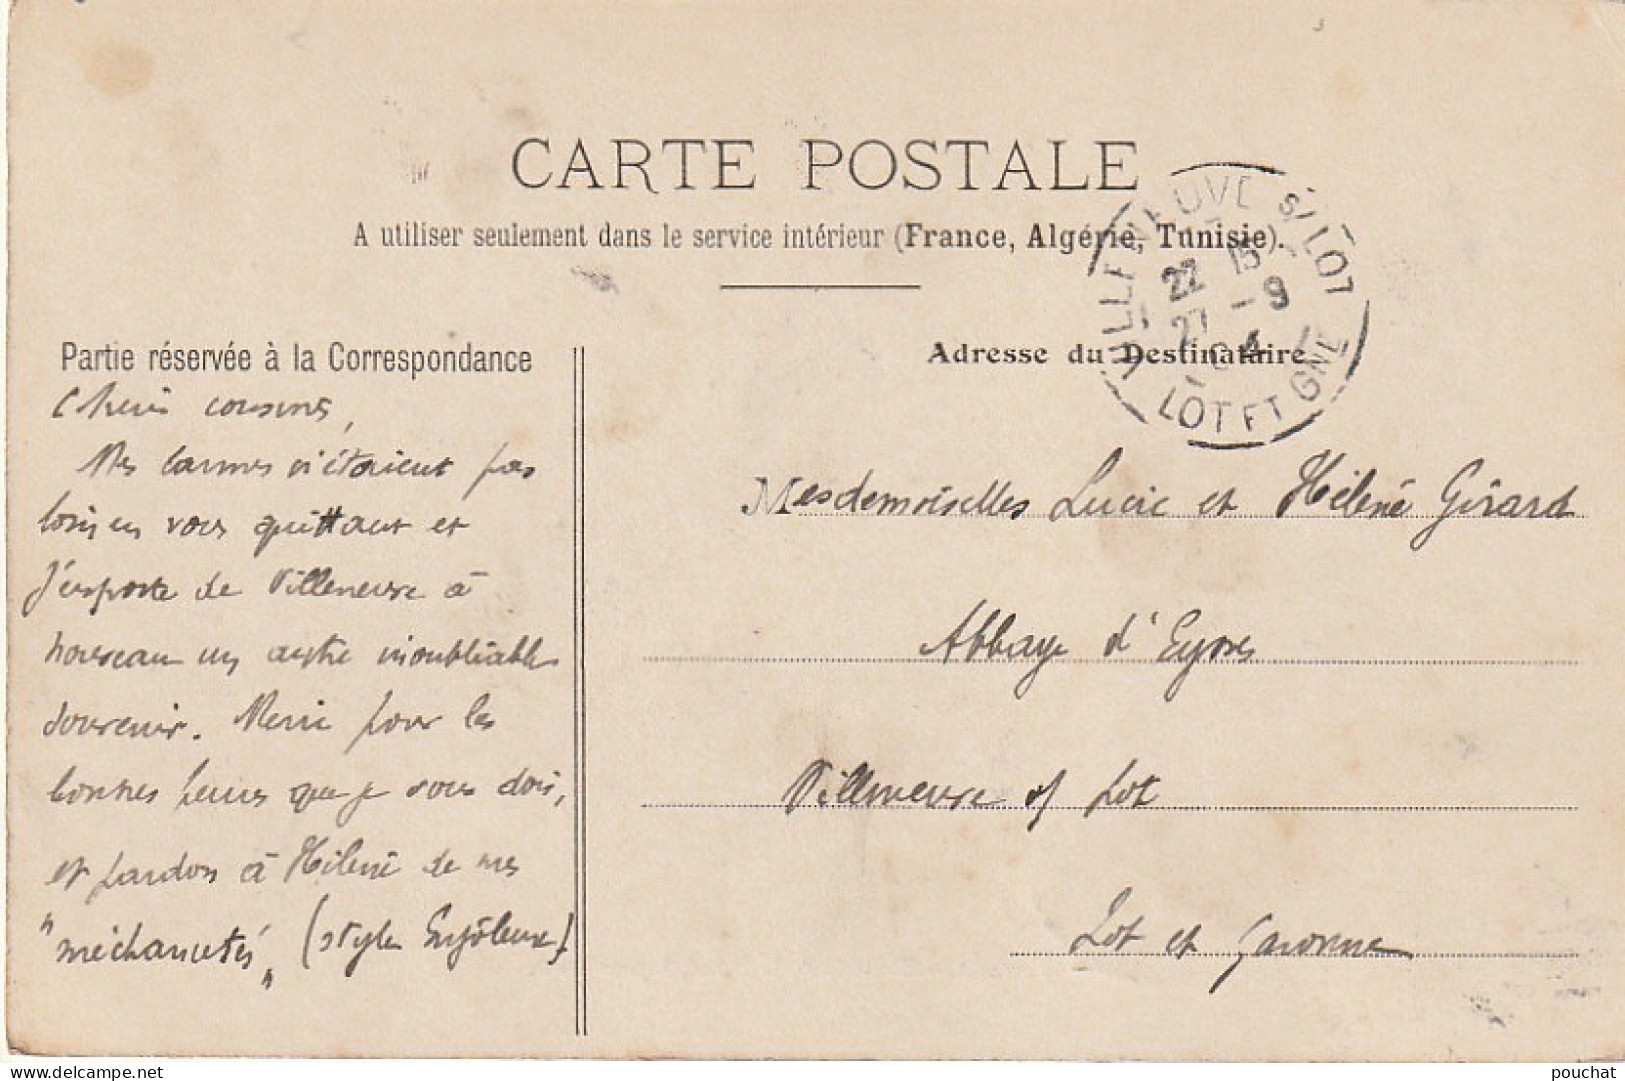 CARTE POSTALE
A utiliser seulement dans le service intérieur (France, Algérie, Tunisie).
VILLENEUVE S/LOT
22 15
27 - 9
04
LOT ET GNE
Partie réservée à la Correspondance
Chères cousines,
Mes larmes n'étaient pas
loin en vous quittant et
j'emporte de Villeneuve à
nouveau un autre inoubliable
souvenir. Merci pour les
bonnes heures que je vous dois,
et pardon à Hélène de mes
"méchancetés" (style Enjôleuse)
Adresse du Destinataire
Mesdemoiselles Lucie et Hélène Girard
Abbaye d'Eysses
Villeneuve s/ Lot
Lot et Garonne
pouchat